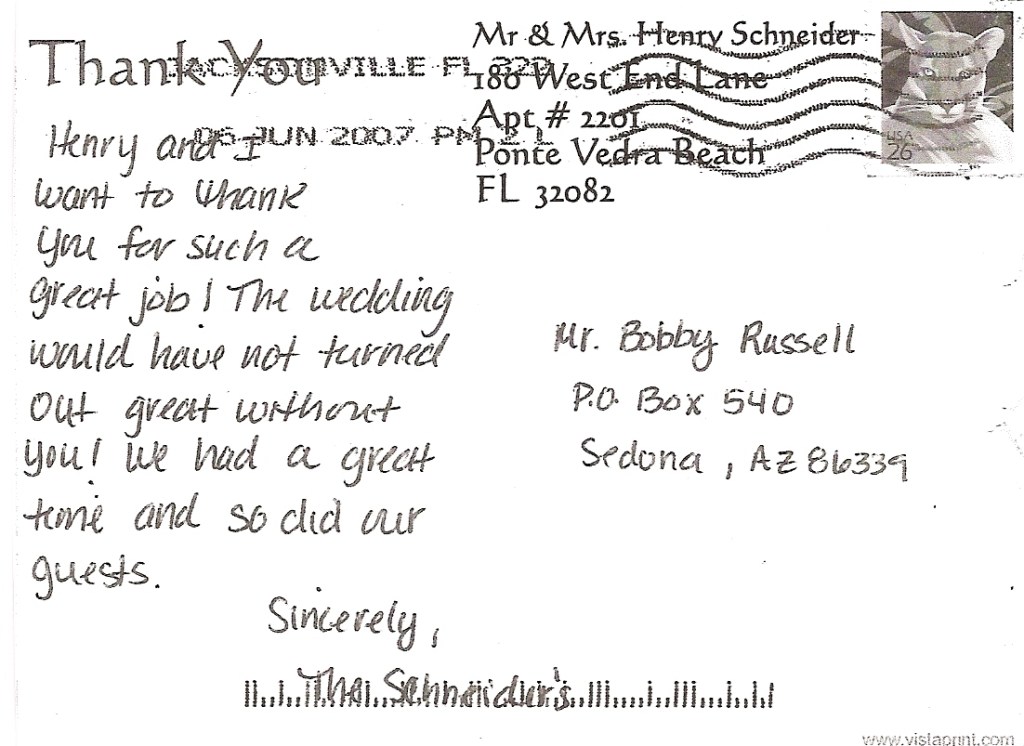 Thank You
JACKSONVILLE FL 322
06 JUN 2007 PM 2 L
Henry and I
want to thank
you for such a
great job! The wedding
would have not turned
out great without
you! We had a great
time and so did our
guests.
Sincerely,
The Schneider's
Mr & Mrs. Henry Schneider
180 West End Lane
Apt # 2201
Ponte Vedra Beach
FL 32082
USA
26
Mr. Bobby Russell
P.O. Box 540
Sedona, AZ 86339
www.vistaprint.com